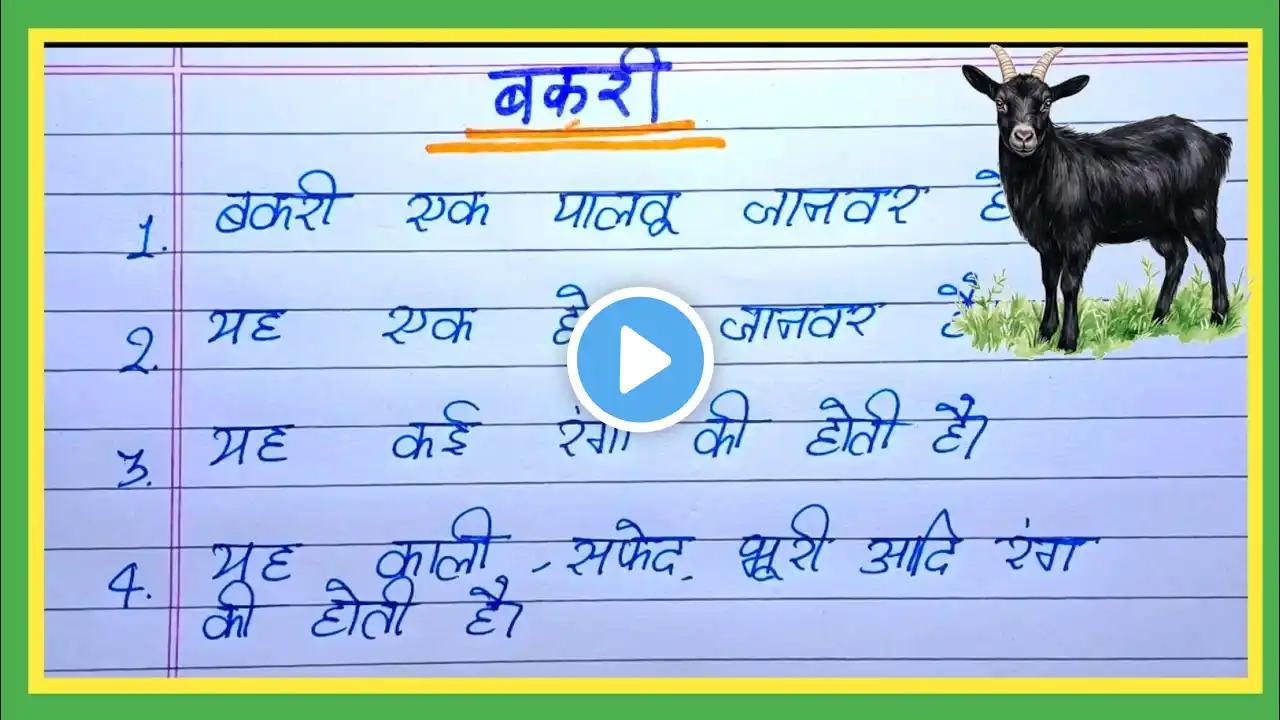 बकरी
1. बकरी एक पालतू जानवर है
2. यह एक जानवर है
3. यह कई रंगो की होती है।
4. यह काली, सफेद, भूरी आदि रंग
की होती है।